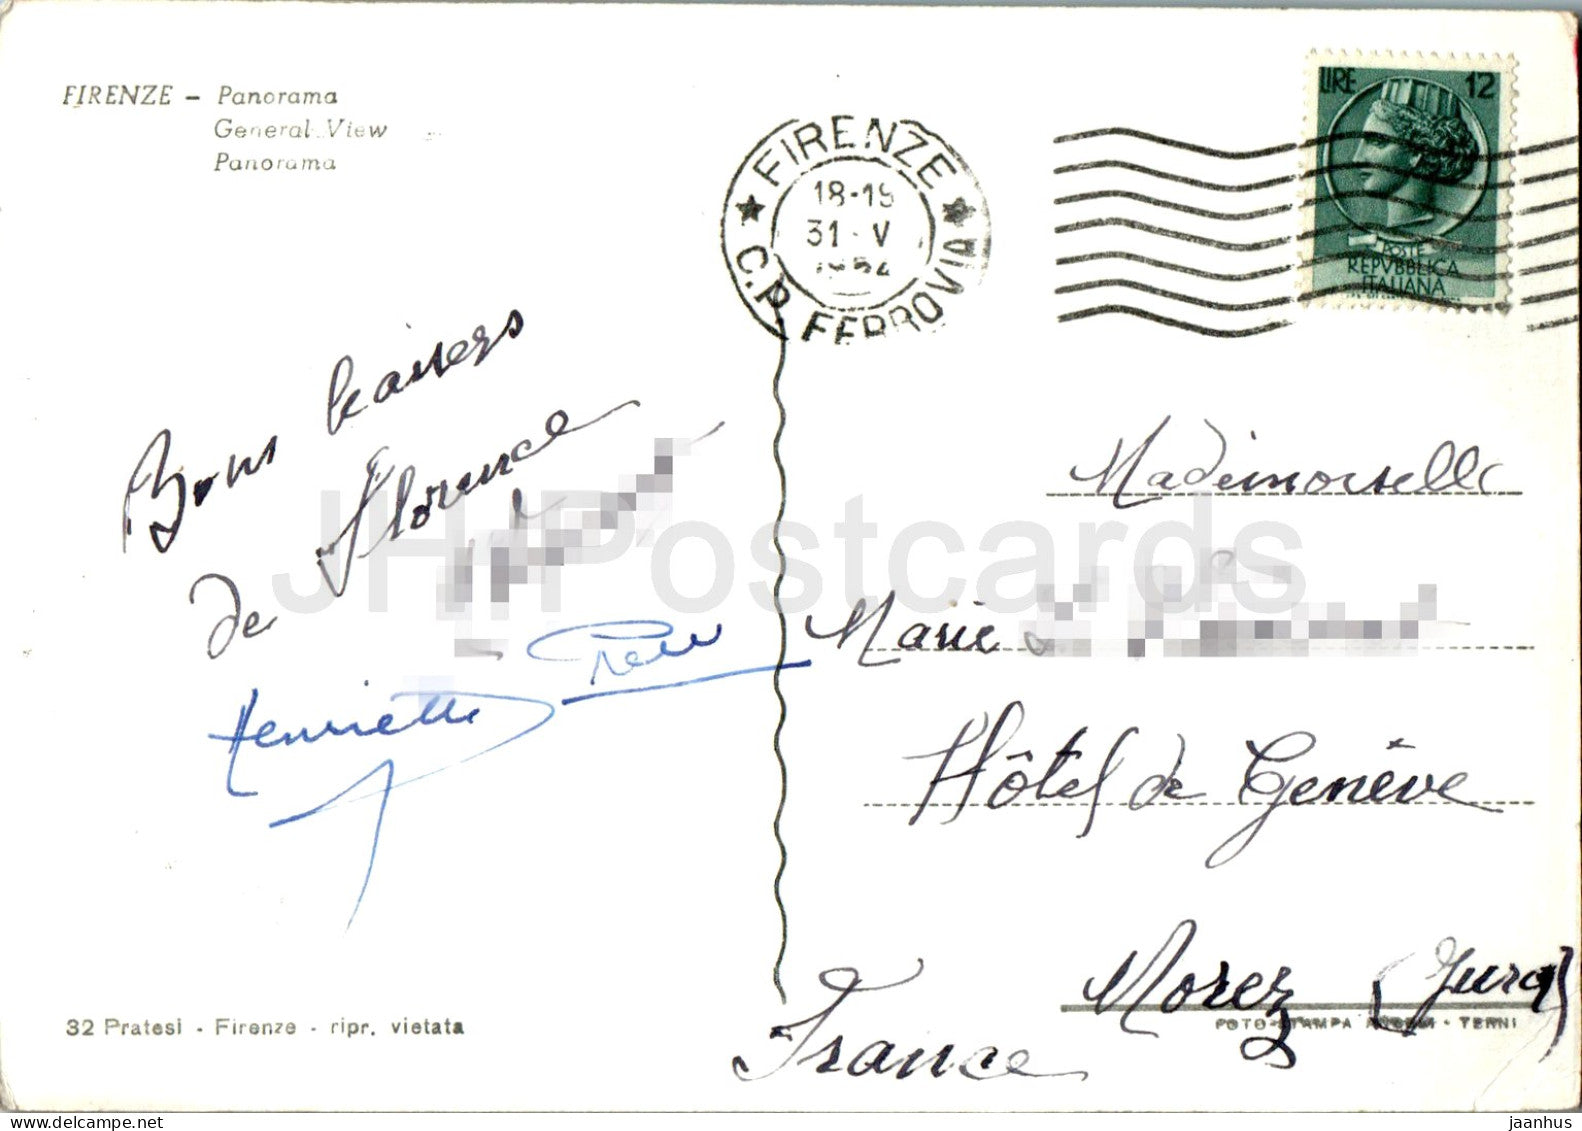 FIRENZE - Panorama
General View
Panorama
FIRENZE
18-19
31·V
1954
C.P. FERROVIA
LIRE 12
POSTE
REPVBBLICA
ITALIANA
Bons baisers
de Florence
Henriette
Mademoiselle
Marie
Hôtel de Genève
Morez (Jura)
France
32 Pratesi - Firenze - ripr. vietata
FOTO-STAMPA - TERNI
JH Postcards
delcampe.net
jaanhus